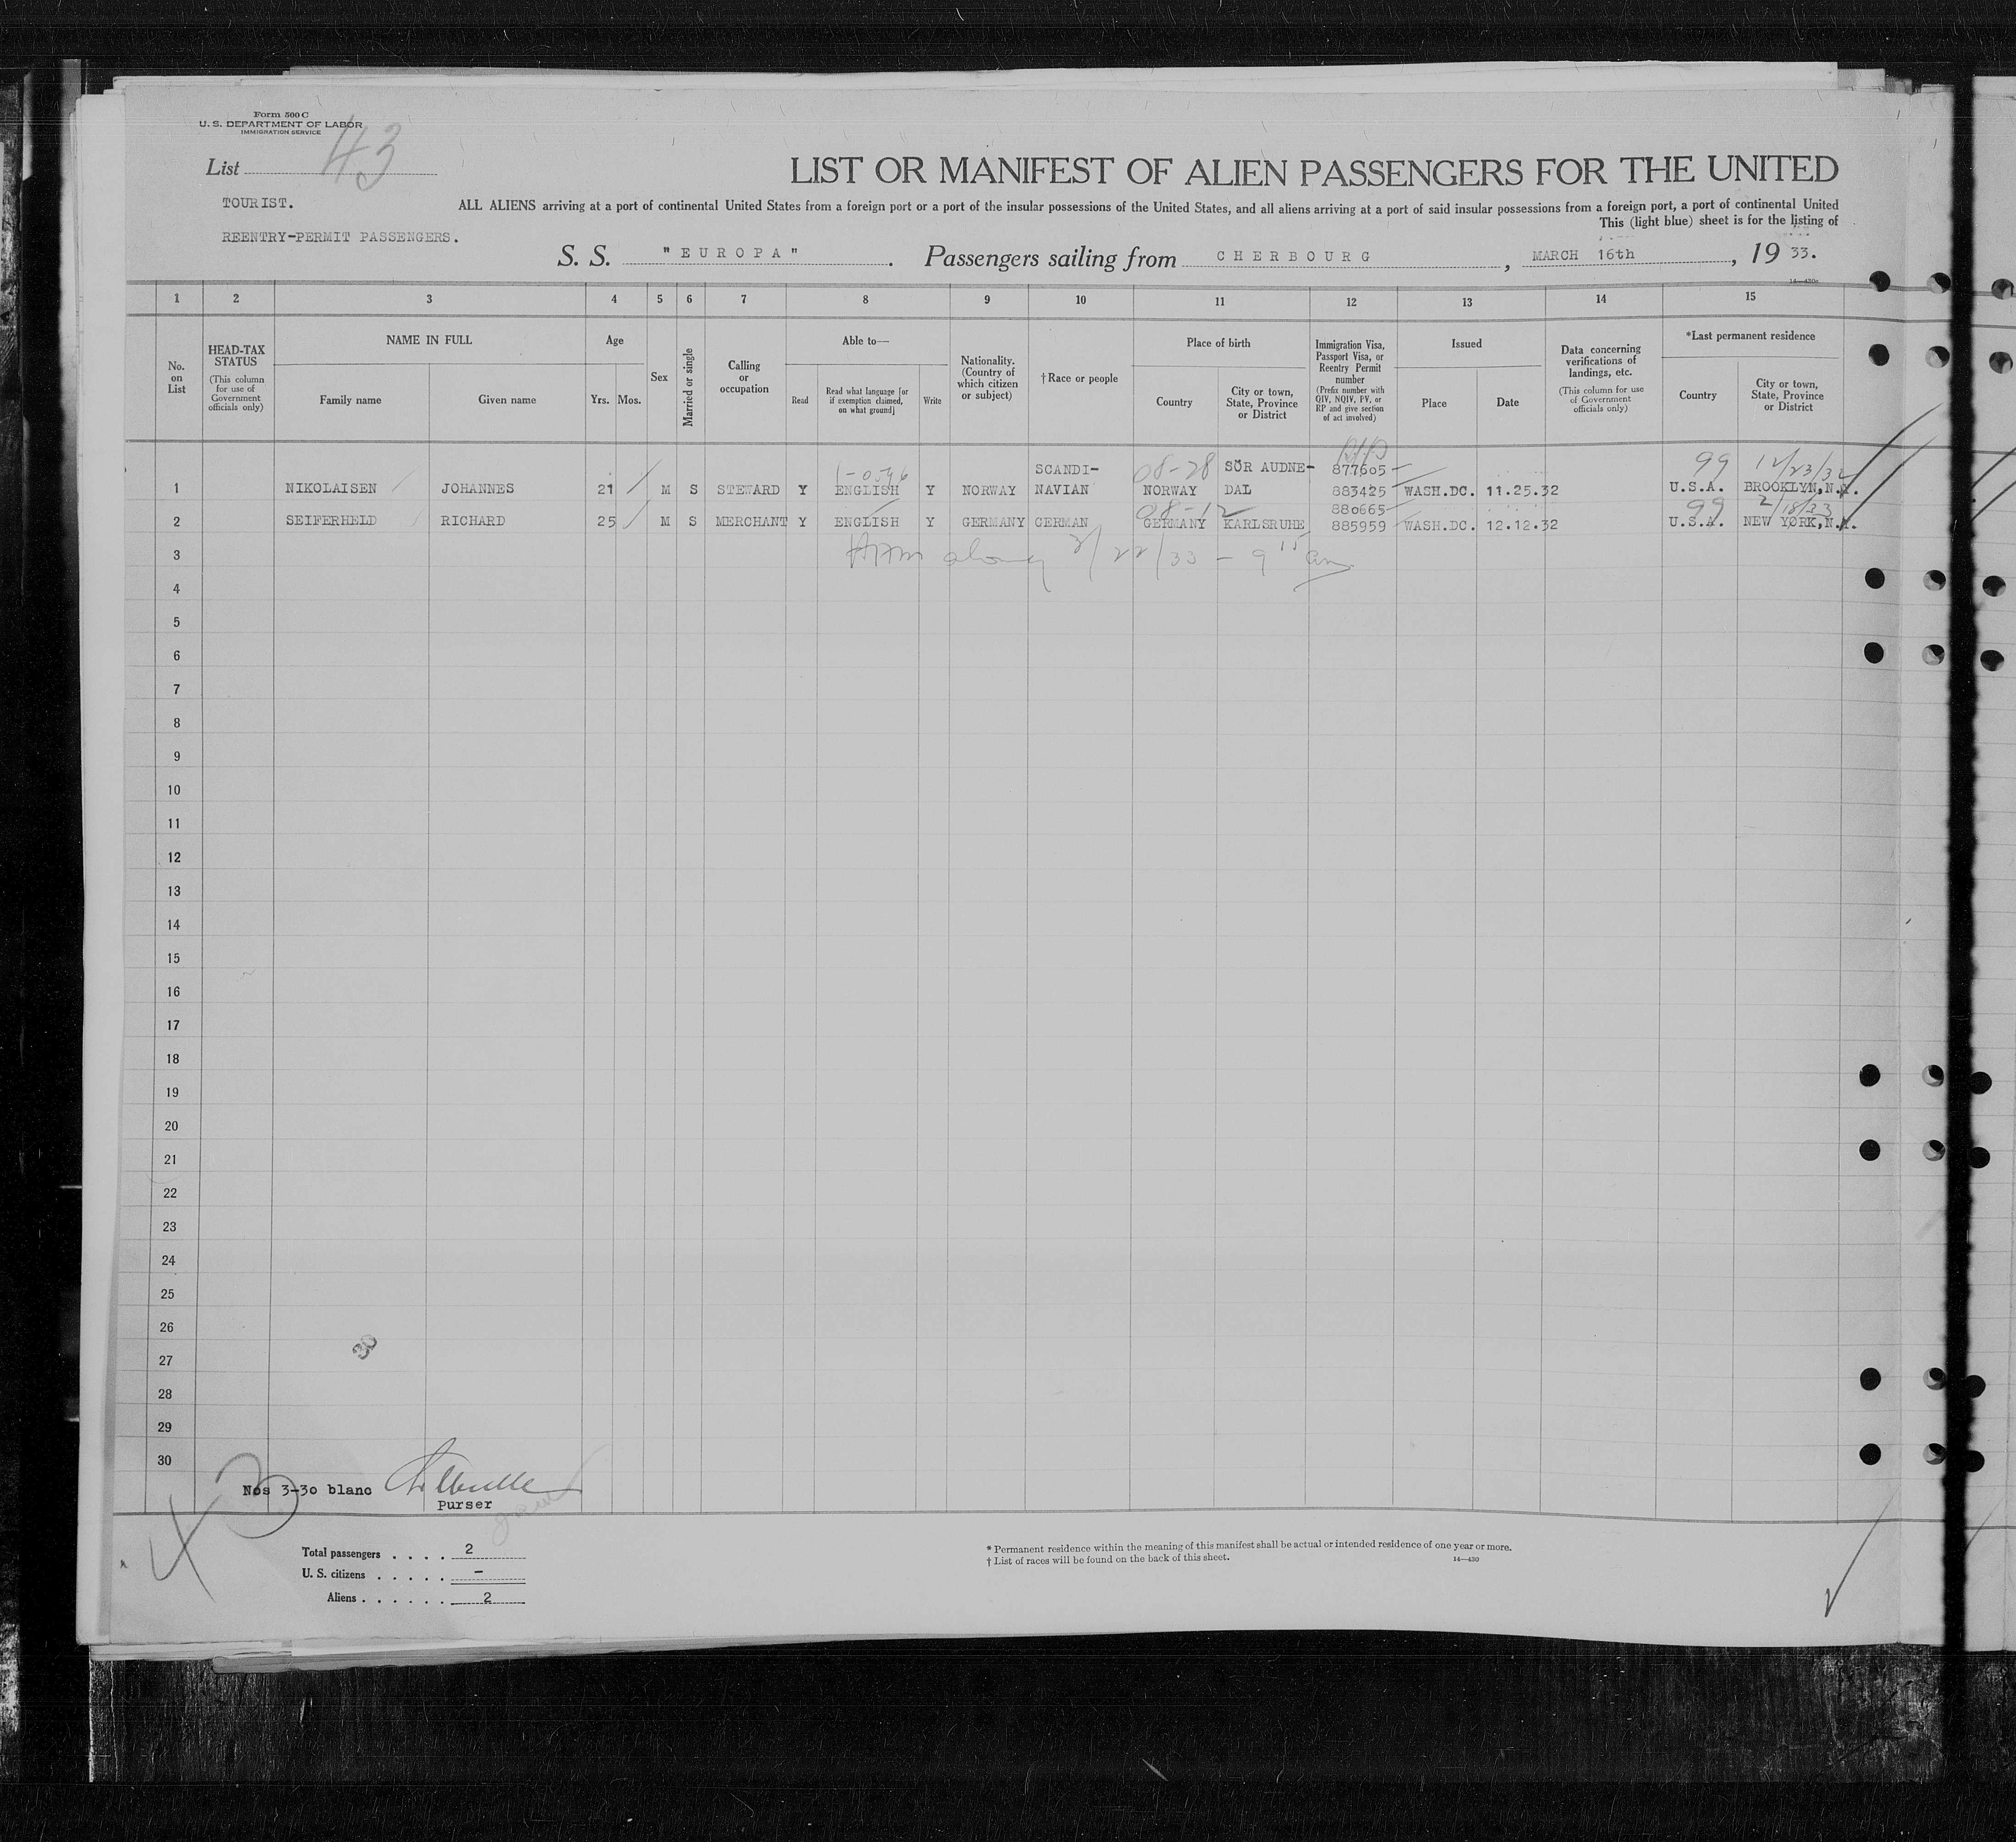 Form 500 C
U. S. DEPARTMENT OF LABOR
IMMIGRATION SERVICE
List 43
LIST OR MANIFEST OF ALIEN PASSENGERS FOR THE UNITED
TOURIST.
ALL ALIENS arriving at a port of continental United States from a foreign port or a port of the insular possessions of the United States, and all aliens arriving at a port of said insular possessions from a foreign port, a port of continental United
This (light blue) sheet is for the listing of
REENTRY-PERMIT PASSENGERS.
S. S. "EUROPA". Passengers sailing from CHERBOURG, MARCH 16th, 19 33.
14—430a
1 2 3 4 5 6 7 8 9 10 11 12 13 14 15
No. on List
HEAD-TAX STATUS
(This column for use of Government officials only)
NAME IN FULL
Family name Given name
Age
Yrs. Mos.
Sex
Married or single
Calling or occupation
Able to—
Read Read what language [or if exemption claimed, on what ground] Write
Nationality. (Country of which citizen or subject)
† Race or people
Place of birth
Country City or town, State, Province or District
Immigration Visa, Passport Visa, or Reentry Permit number
(Prefix number with QIV, NQIV, PV, or RP and give section of act involved)
Issued
Place Date
Data concerning verifications of landings, etc.
(This column for use of Government officials only)
*Last permanent residence
Country City or town, State, Province or District
1-0546 SCANDI- 08-28 SÖR AUDNE- 877605- 99 12/23/32
1 NIKOLAISEN JOHANNES 21 M S STEWARD Y ENGLISH Y NORWAY NAVIAN NORWAY DAL 883425 WASH.DC. 11.25.32 U.S.A. BROOKLYN,N.Y.
08-12 880665- 99 2/18/33
2 SEIFERHELD RICHARD 25 M S MERCHANT Y ENGLISH Y GERMANY GERMAN GERMANY KARLSRUHE 885959 WASH.DC. 12.12.32 U.S.A. NEW YORK,N.Y.
3 /22/33 - 9 15 am
4
5
6
7
8
9
10
11
12
13
14
15
16
17
18
19
20
21
22
23
24
25
26
27
28
29
30
30
Nos 3-30 blanc
Purser
Total passengers . . . . 2
U. S. citizens . . . . . -
Aliens . . . . . . 2
* Permanent residence within the meaning of this manifest shall be actual or intended residence of one year or more.
† List of races will be found on the back of this sheet. 14—430